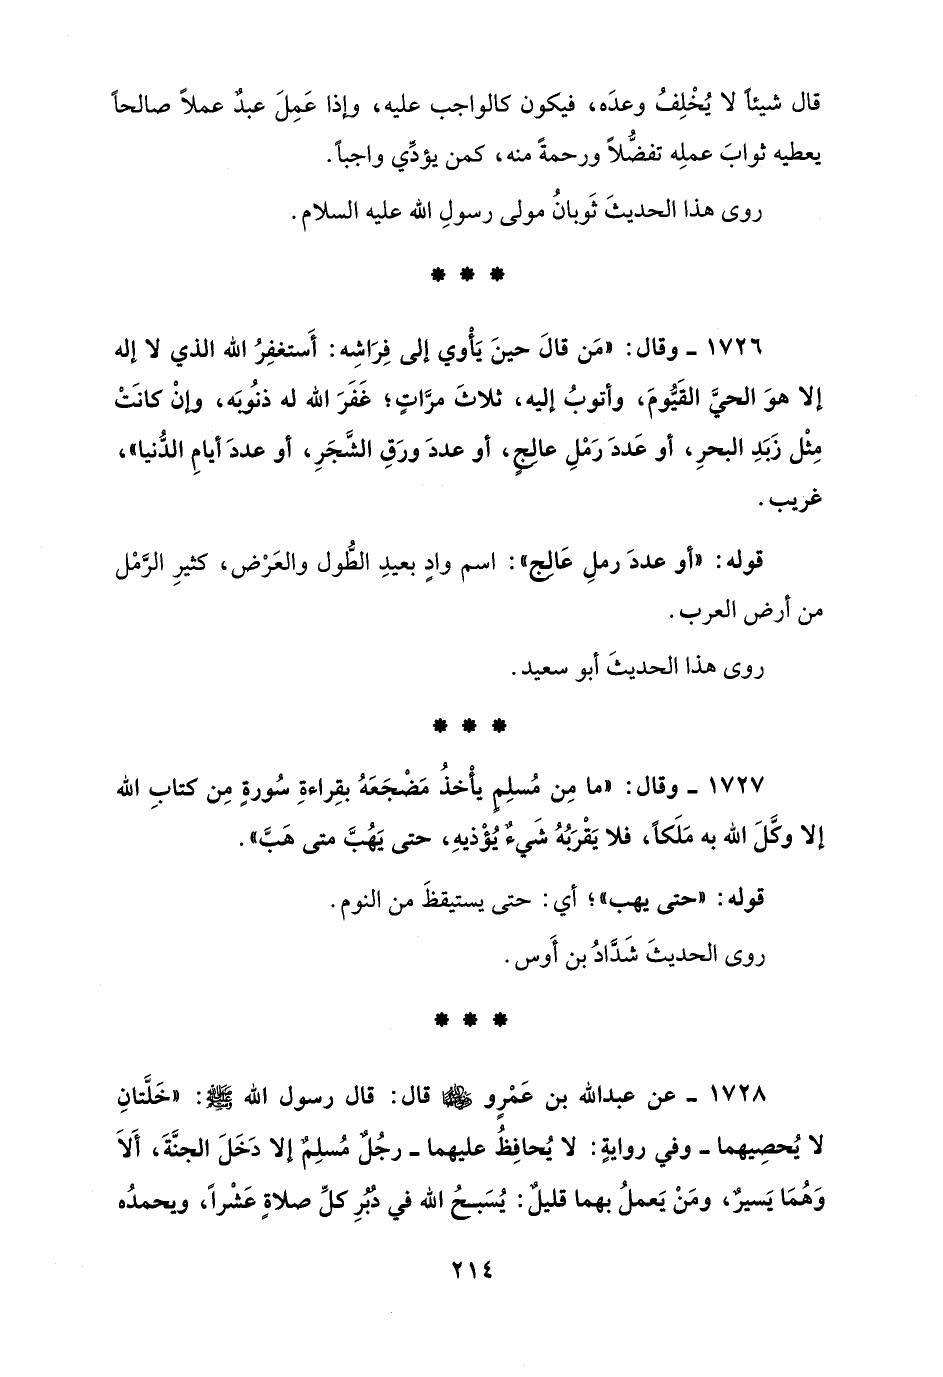 قال شيئاً لا يُخْلِفُ وعدَه، فيكون كالواجب عليه، وإذا عَمِلَ عبدٌ عملاً صالحاً
يعطيه ثوابَ عملِه تفضُّلاً ورحمةً منه، كمن يؤدِّي واجباً.
روى هذا الحديثَ ثَوبانُ مولى رسولِ الله عليه السلام.
* * *
١٧٢٦ ـ وقال: «مَن قالَ حينَ يَأْوي إلى فِرَاشِه: أَستغفِرُ الله الذي لا إله
إلا هوَ الحيَّ القَيُّومَ، وأتوبُ إليه، ثلاثَ مرَّاتٍ؛ غَفَرَ الله له ذنُوبَه، وإنْ كانَتْ
مِثْل زَبَدِ البحرِ، أو عَددَ رَمْلِ عالِجٍ، أو عددَ ورَقِ الشَّجَرِ، أو عددَ أيامِ الدُّنيا»،
غريب.
قوله: «أو عددَ رملِ عَالِج»: اسم وادٍ بعيدِ الطُّول والعَرْض، كثيرِ الرَّمْل
من أرض العرب.
روى هذا الحديثَ أبو سعيد.
* * *
١٧٢٧ ـ وقال: «ما مِن مُسلِمٍ يأْخذُ مَضْجَعَهُ بقِراءةِ سُورةٍ مِن كتابِ الله
إلا وكَّلَ الله به مَلَكاً، فلا يَقْرَبُهُ شَيءٌ يُؤْذيهِ، حتى يَهُبَّ متى هَبَّ».
قوله: «حتى يهب»؛ أي: حتى يستيقظَ من النوم.
روى الحديثَ شَدَّادُ بن أَوس.
* * *
١٧٢٨ ـ عن عبدالله بن عَمْرٍو ﵁ قال: قال رسول الله ﷺ: «خَلَّتانِ
لا يُحصِيهما ـ وفي روايةٍ: لا يُحافِظُ عليهما ـ رجُلٌ مُسلِمٌ إلا دَخَلَ الجنَّةَ، أَلاَ
وَهُمَا يَسيرٌ، ومَنْ يَعملُ بهما قليلٌ: يُسَبحُ الله في دُبُرِ كلِّ صلاةٍ عَشْراً، ويحمدُه
٢١٤